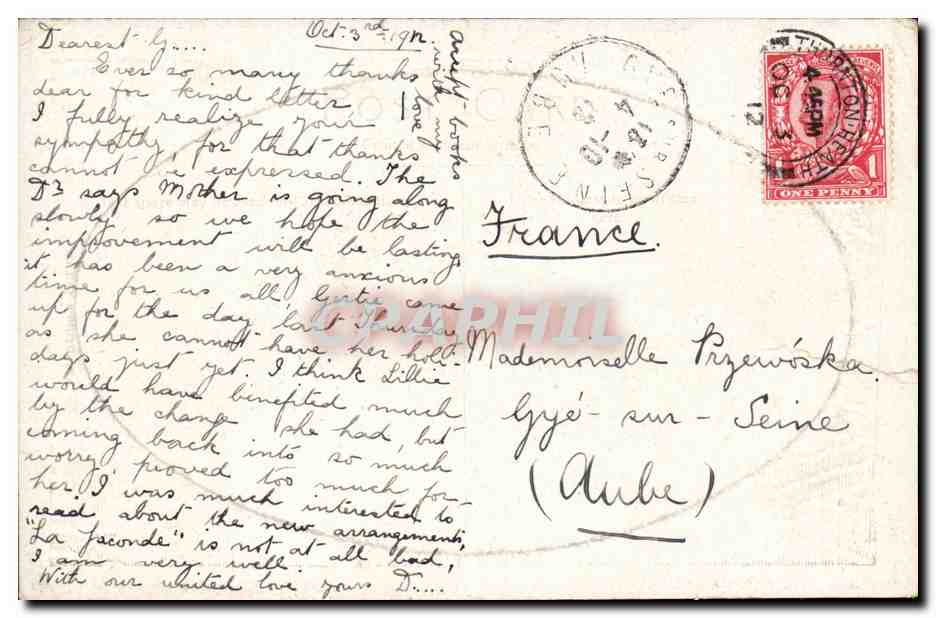 Oct. 3rd 1912.
Dearest Ly.....
Ever so many thanks
dear for kind letter
I fully realize your
sympathy, for that thanks
cannot be expressed. The
Dr says Mother is going along
slowly so we hope the
improvement will be lasting
it has been a very anxious
time for us all, Gertie came
up for the day last Thursday
as she cannot have her holi-
days just yet. I think Lillie
would have benefited much
by the change she had, but
coming back into so much
worry proved too much for
her, I was much interested to
read about the new arrangements,
"La Joconde" is not at all bad,
I am very well.
With our united love yours D.....
books
with my
love
France.
Mademoiselle Przewóska.
Gyé-sur-Seine
(Aube)
THORNTON-HEATH
4.45PM
OC 3
12
ONE PENNY
1
1
SEINE
AUBE
CPAPHIL